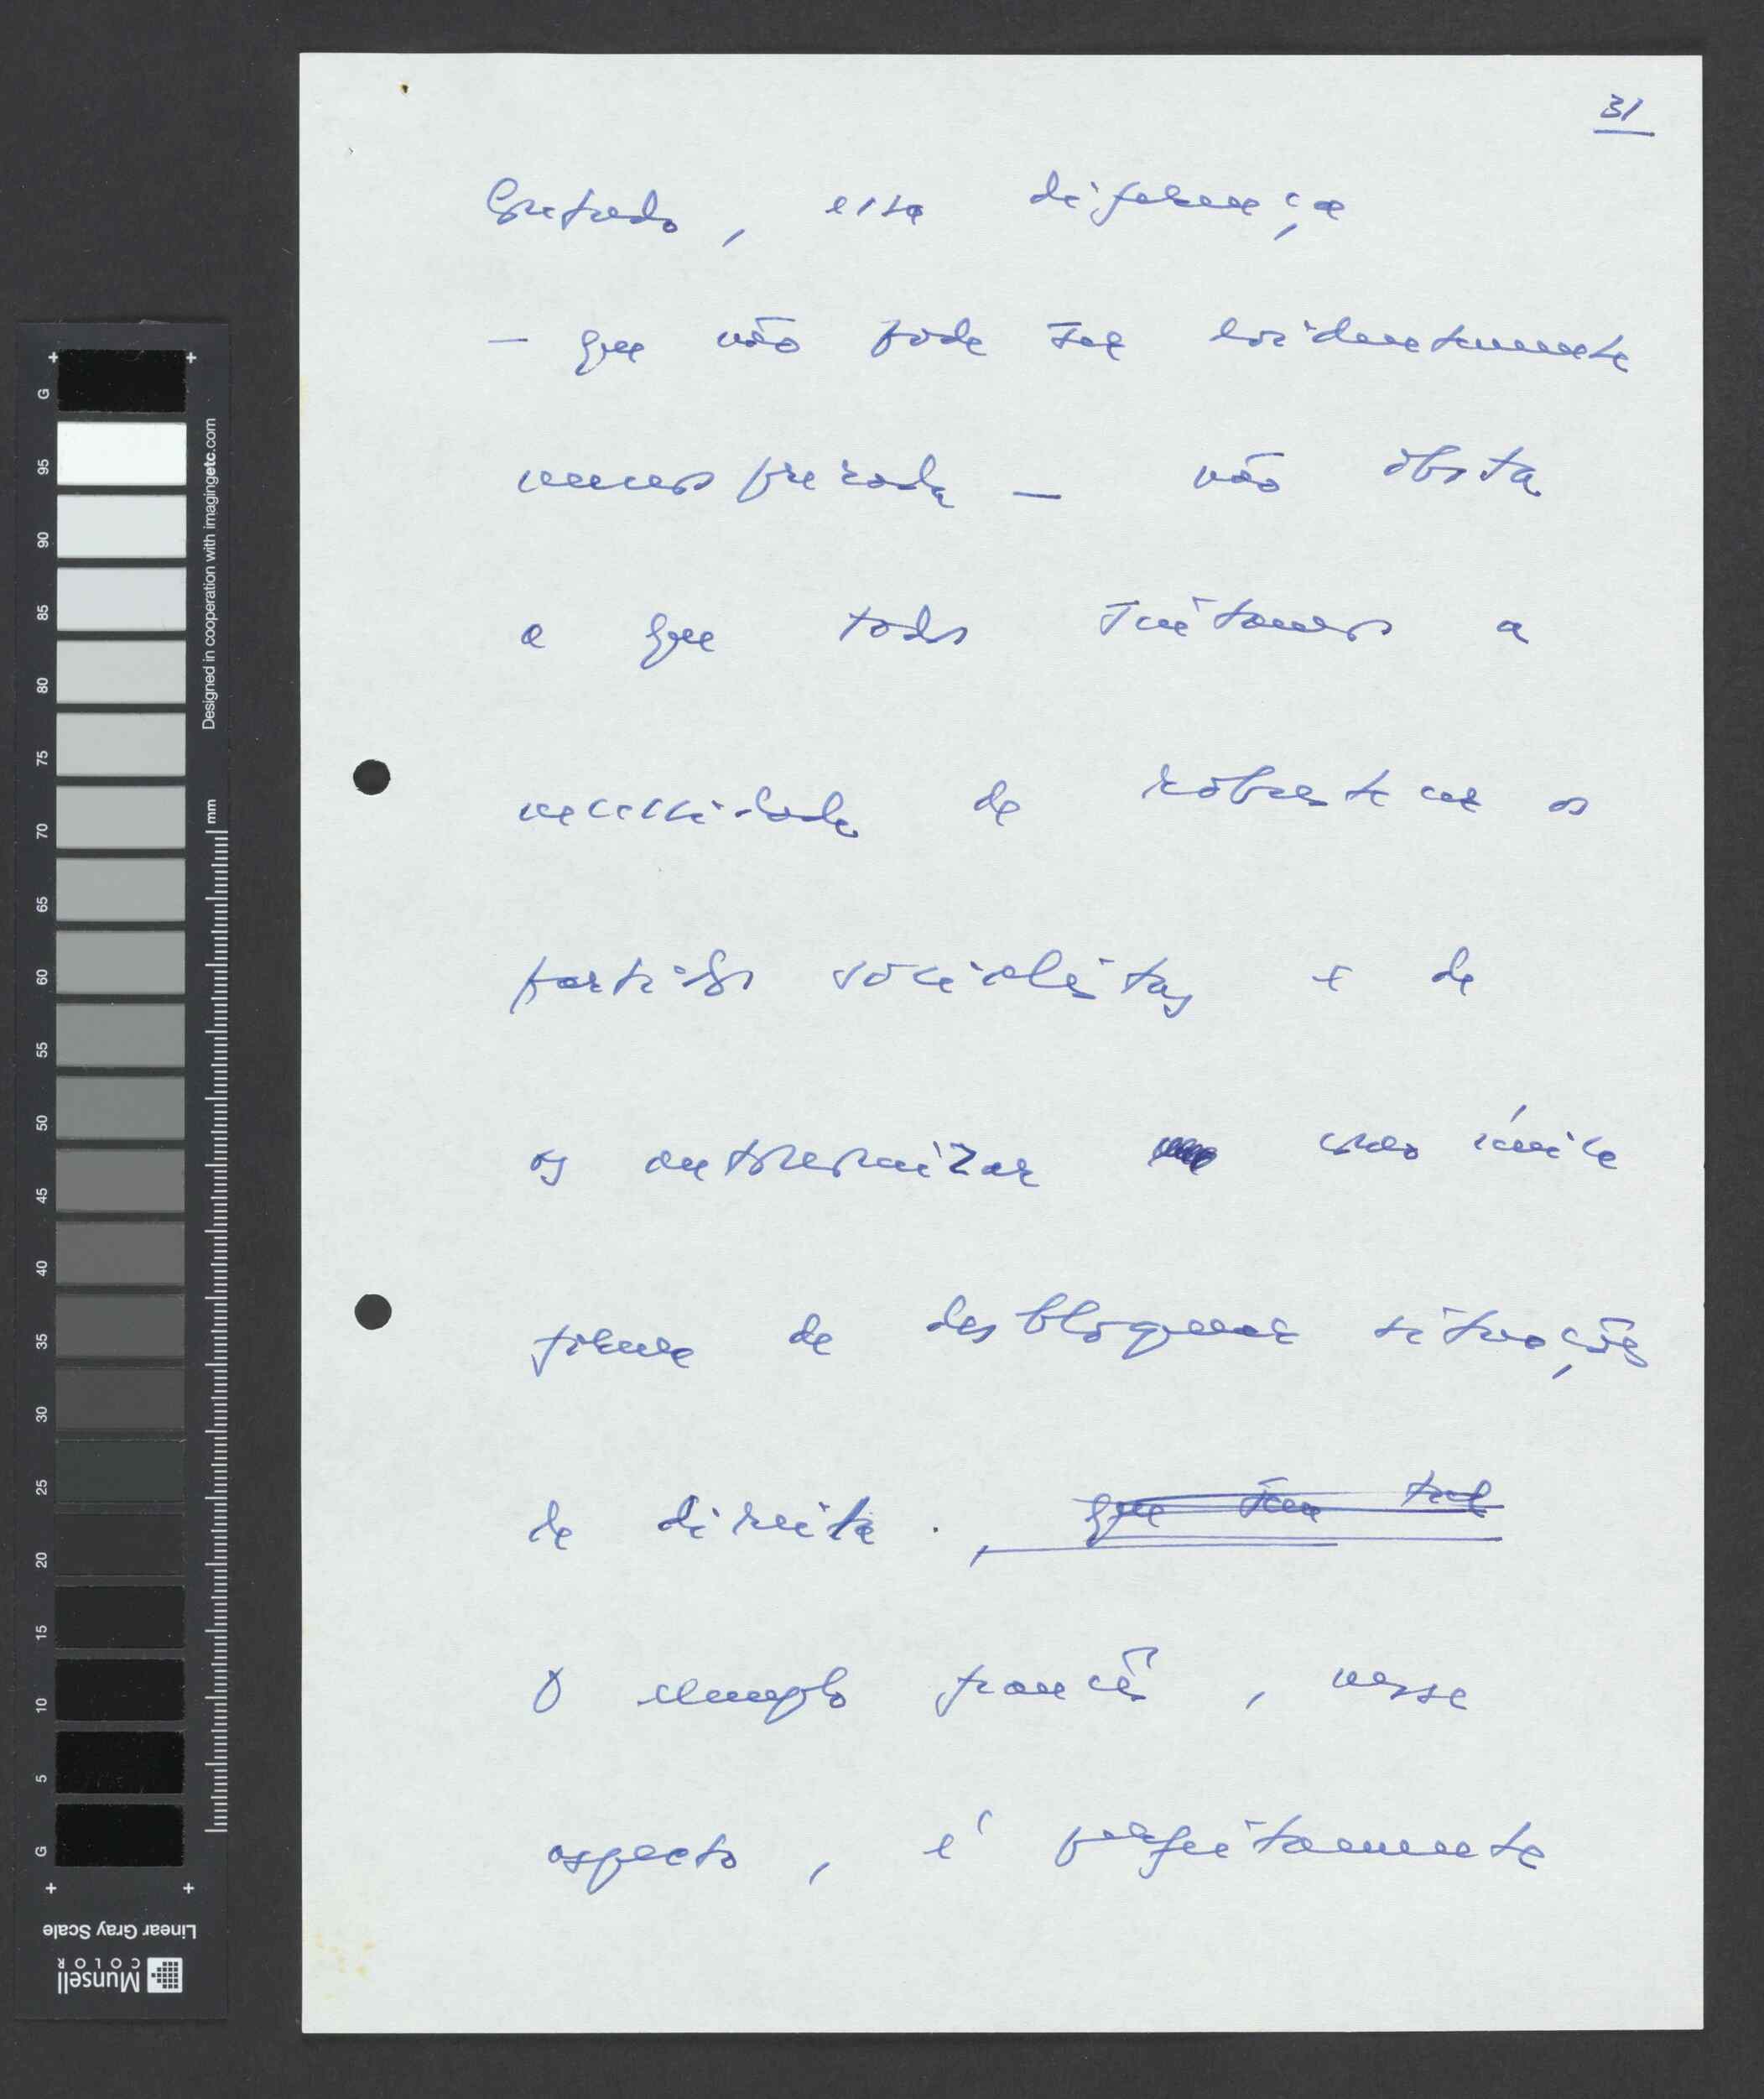 31
Contudo, essa diferença
— que não pode ser evidentemente
menosprezada — não obsta
a que todos sintamos a
necessidade de robustecer os
partidos socialistas e de
os autonomizar como única
forma de desbloquear situações
de direita. , que tem tal
O exemplo francês, nesse
aspecto, é perfeitamente
G
95
90
85
80
75
70
65
60
55
50
45
40
35
30
25
20
15
10
5
G
Designed in cooperation with imagingetc.com
mm
Linear Gray Scale
Munsell
COLOR